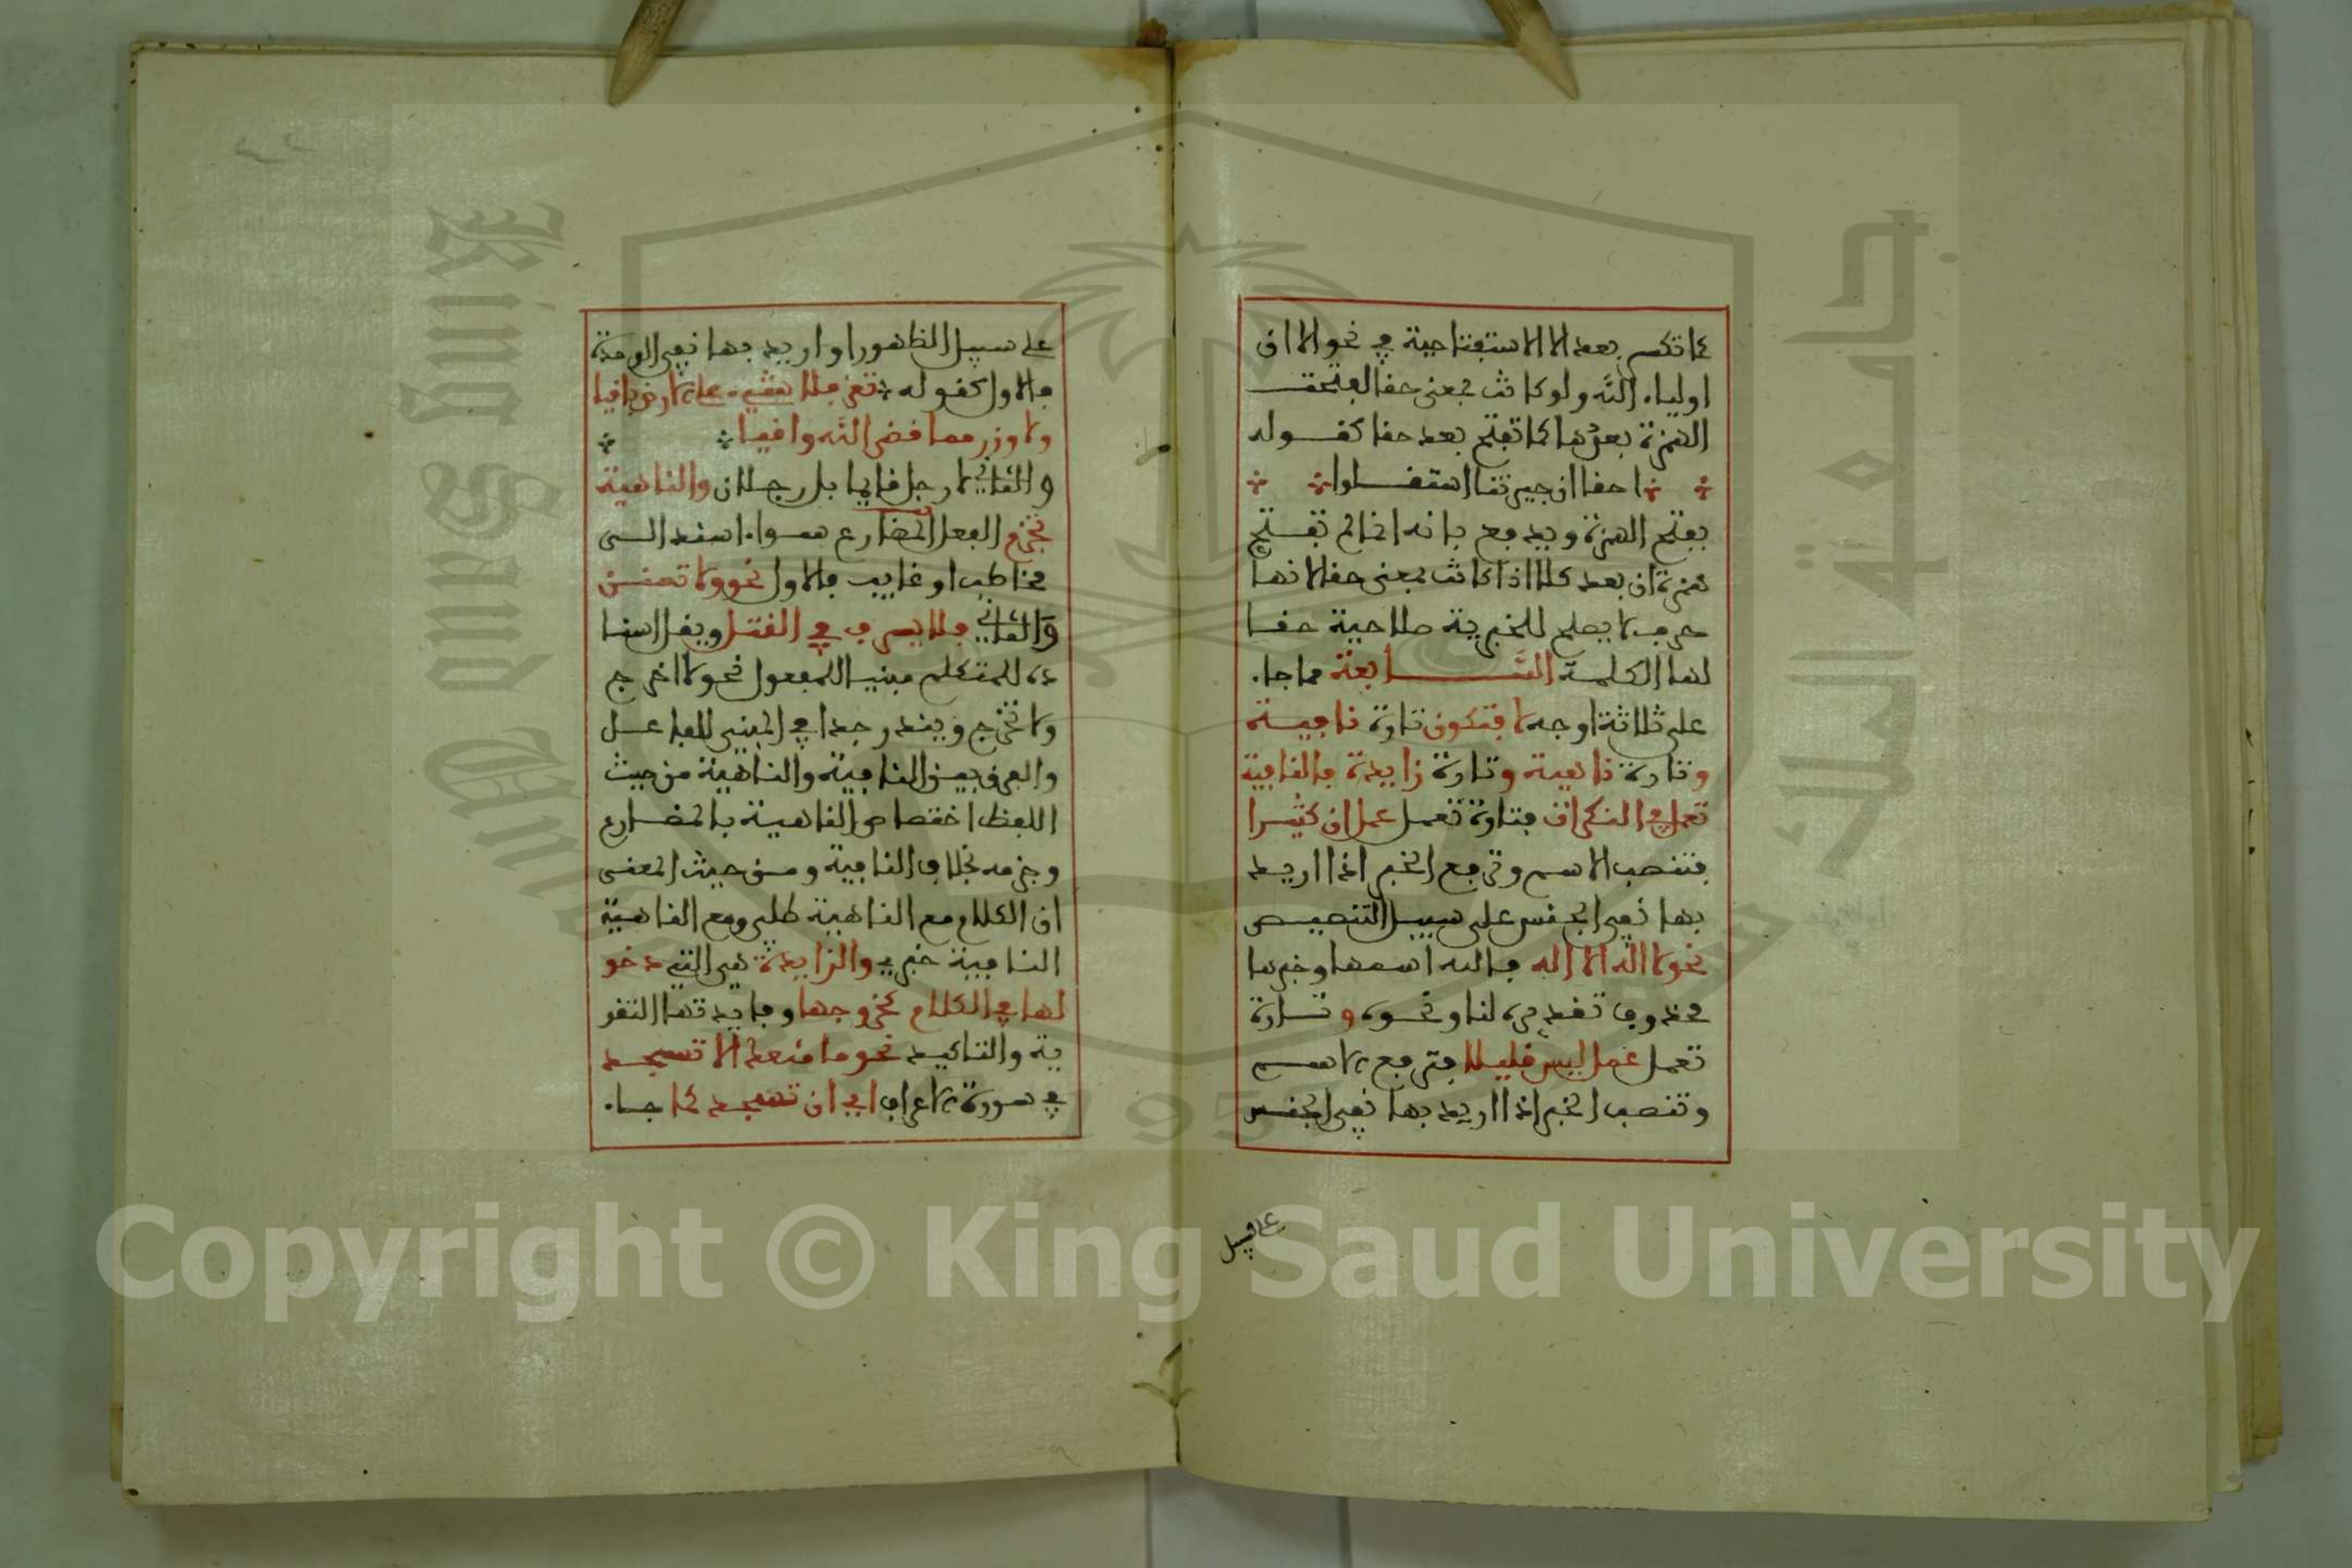 كما تكسر بعد الا الاستفتاحية في نحو الا ان
اولياء الله ولو كانت بمعنى حقا لفتحت
الهمزة بعدها كما تفتح بعد حقا كقوله
احقا ان جيرتنا استقلوا
بفتح الهمزة ويدفع بانه انما لم تفتح
همزة ان بعد كلا اذا كانت بمعنى حقا لانها
حرف لا يصلح للخبرية صلاحية حقا
لها الكلمة السابعة مما جاء
على ثلاثة اوجه لا فتكون تارة نافية
وتارة ناهية وتارة زايدة فالنافية
تعمل في النكرات فتارة تعمل عمل ان كثيرا
فتنصب الاسم وترفع الخبر اذا اريد
بها نفي الجنس على سبيل التنصيص
نحو لا اله الا الله فاله اسمها وخبرها
محذوف تقديره لنا ونحوه وتارة
تعمل عمل ليس قليلا فترفع الاسم
وتنصب الخبر اذا اريد بها نفي الجنس
على سبيل الظهور او اريد بها نفي الوحدة
فالاول كقوله تعز فلا شيء على الارض باقيا
ولا وزر مما قضى الله واقيا
والثاني لا رجل قايما بل رجلان والناهية
تجزم الفعل المضارع سواء اسند الى
مخاطب او غايب فالاول نحو ولا تمنن
والثاني فلا يسرف في القتل ويقل اسنا
ده للمتكلم مبنيا للمفعول نحو لا اخرج
ولا نخرج ويندر جدا في المبني للفاعل
والفرق بين النافية والناهية من حيث
اللفظ اختصاص الناهية بالمضارع
وجزمه بخلاف النافية ومن حيث المعنى
ان الكلام مع الناهية طلبي ومع الناهية
النافية خبري والزايدة هي التي دخو
لها في الكلام كخروجها وفايدتها التقو
ية والتاكيد نحو ما منعك الا تسجد
في سورة الاعراف اي ان تسجد كما جاء
King Saud University
جامعة الملك سعود
1957
Copyright © King Saud University